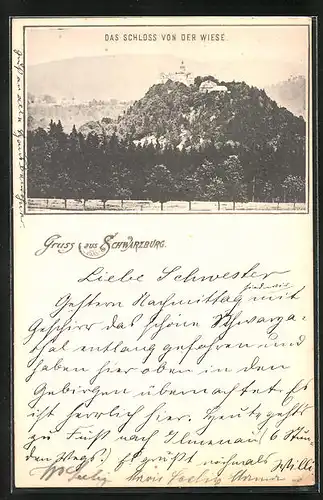 DAS SCHLOSS VON DER WIESE.
Gruss aus Schwarzburg.
Liebe Schwester
Gestern Nachmittag sind wir mit
Geschirr das schöne Schwarza-
thal entlang gefahren und
haben hier oben in den
Gebirgen übernachtet. Es
ist herrlich hier. Heute gehts
zu Fuß nach Ilmenau (6 Stun-
den Wegs) Es grüßt nochmals Willi